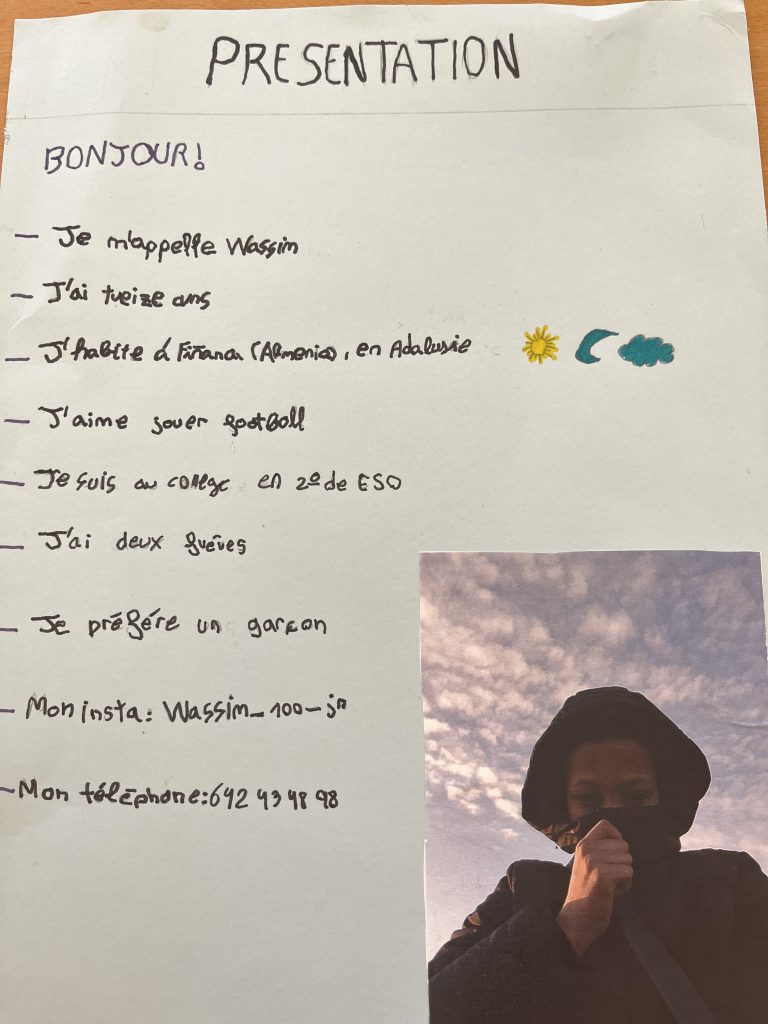 PRESENTATION
BONJOUR!
— Je m'appelle Wassim
— J'ai treize ans
— J'habite á Fiñana (Almeria), en Adalusie
— J'aime jouer football
— Je suis au collegc en 2º de ESO
— J'ai deux frēves
— Je préfére un garçon
— Mon insta: Wassim_100_jr
— Mon téléphone: 642 43 48 98